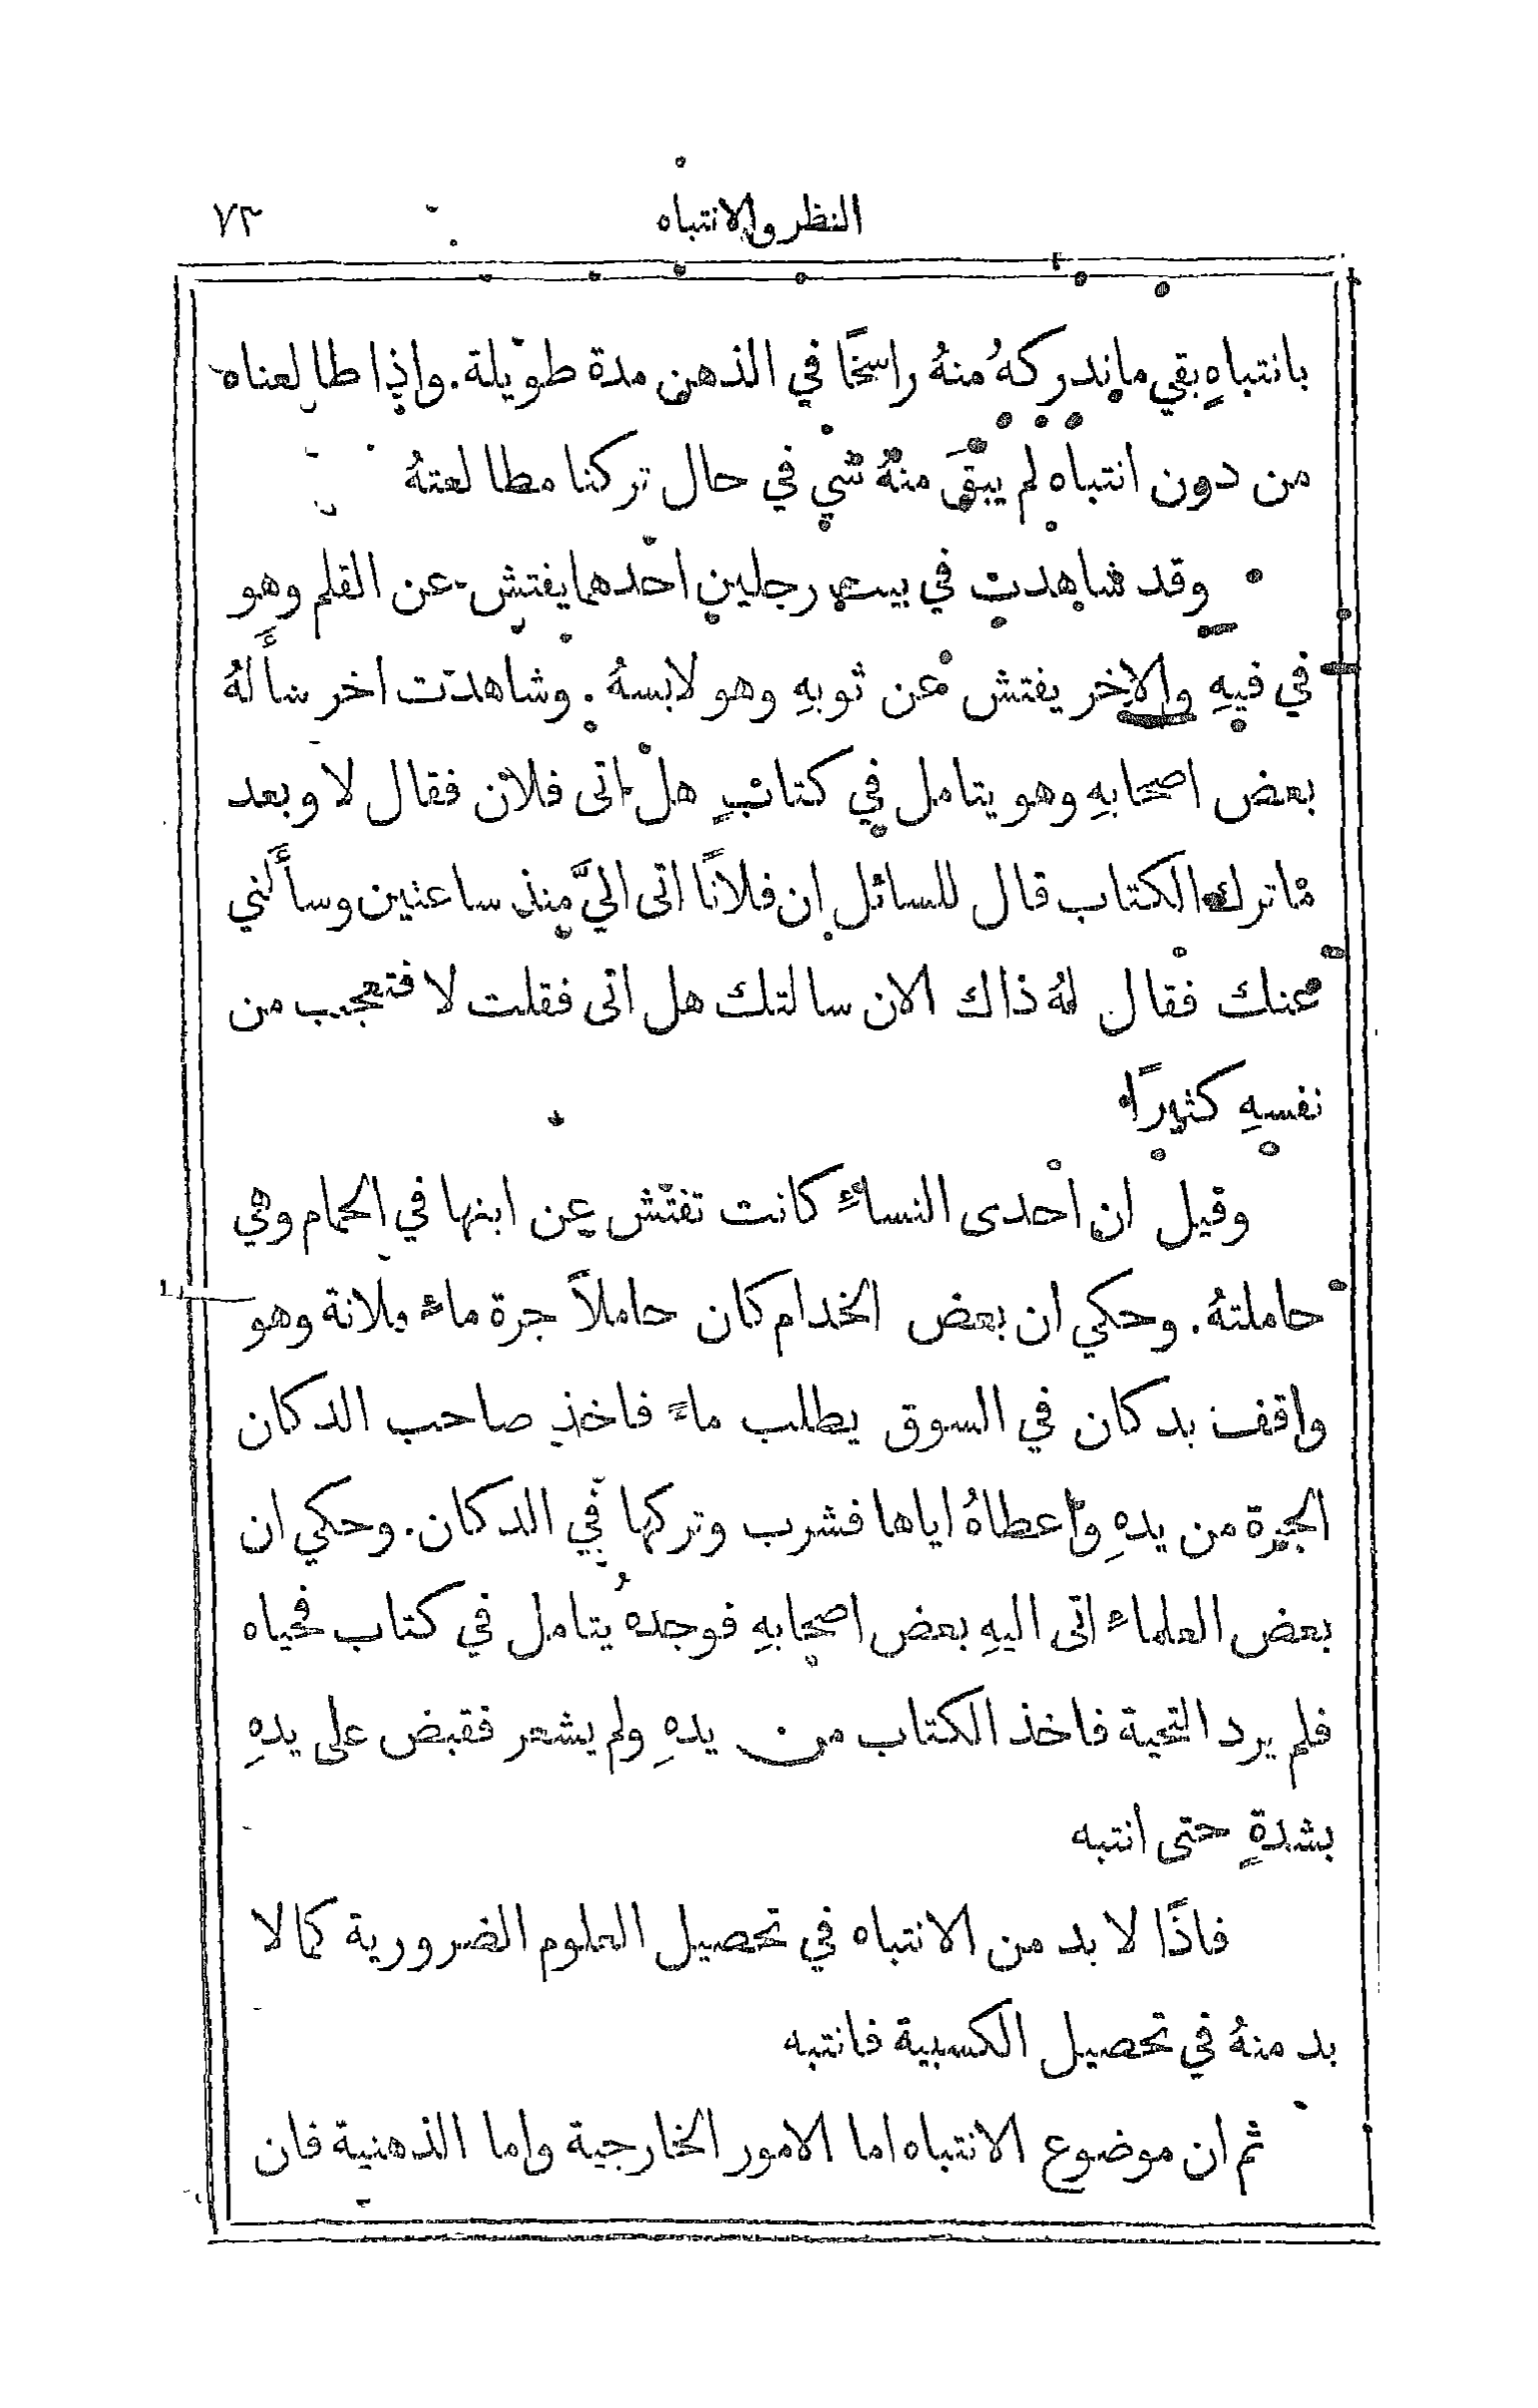 النظر والانتباه ٧٣
بانتباهٍ بقي ما ندركهُ منهُ راسخًا في الذهن مدة طويلة. واذا طالعناه
من دون انتباه لم يبقَ منهُ شي في حال تركنا مطالعتهُ
وقد شاهدت في بيت رجلين احدهما يفتش عن القلم وهو
في فيهِ والاخر يفتش عن ثوبهِ وهو لابسهُ. وشاهدت اخر سأَلهُ
بعض اصحابهِ وهو يتامل في كتابٍ هل اتى فلان فقال لا وبعد
ما ترك الكتاب قال للسائل ان فلانًا اتى اليَّ منذ ساعتين وسأَلني
عنك فقال لهُ ذاك الان سالتك هل اتى فقلت لا فتعجب من
نفسهِ كثيرًا
وقيل ان احدى النساء كانت تفتش عن ابنها في الحمام وهي
حاملتهُ. وحكي ان بعض الخدام كان حاملاً جرة ماء ملانة وهو
واقف بدكان في السوق يطلب ماءً فاخذ صاحب الدكان
الجرة من يدهِ واعطاهُ اياها فشرب وتركها في الدكان. وحكي ان
بعض العلماء اتى اليهِ بعض اصحابهِ فوجدهُ يتامل في كتاب فحياه
فلم يرد التحية فاخذ الكتاب من يدهِ ولم يشعر فقبض على يدهِ
بشدةٍ حتى انتبه
فاذًا لا بد من الانتباه في تحصيل العلوم الضرورية كما لا
بد منهُ في تحصيل الكسبية فانتبه
ثم ان موضوع الانتباه اما الامور الخارجية واما الذهنية فان